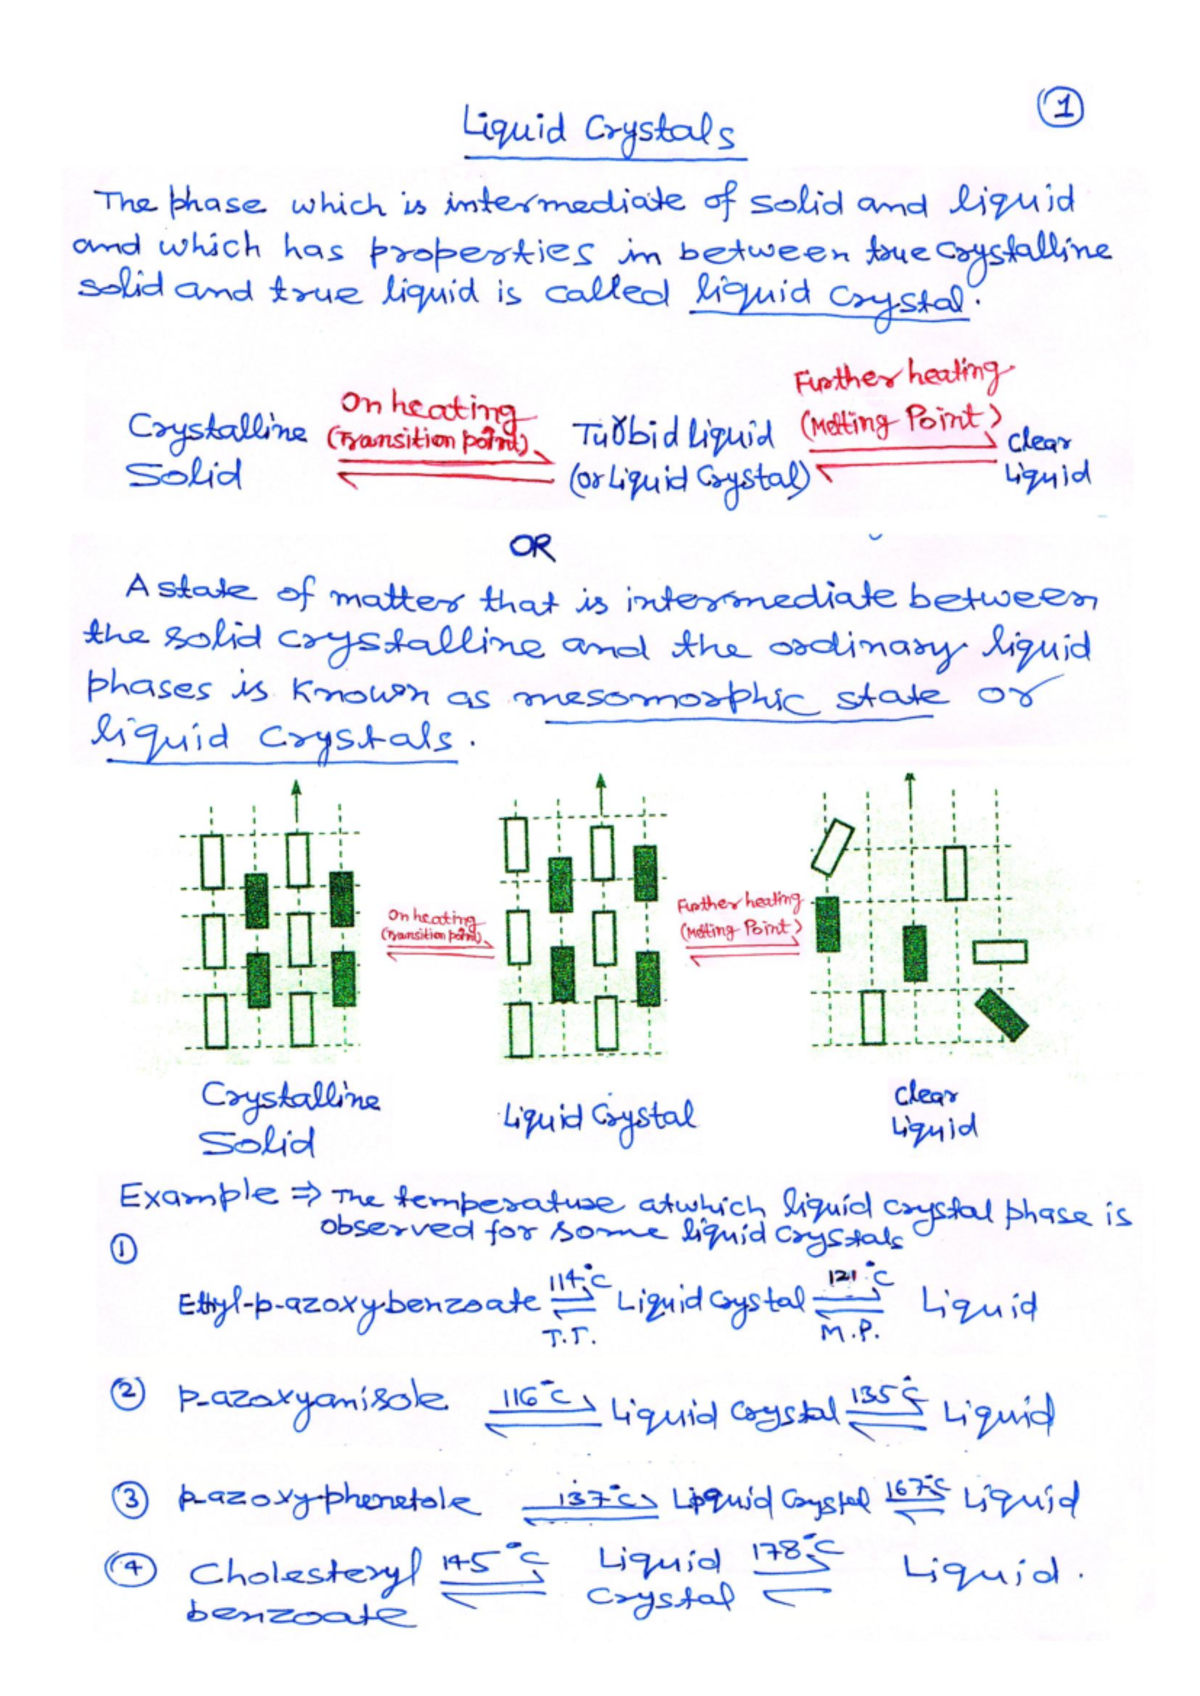 1
Liquid Crystals
The phase which is intermediate of solid and liquid
and which has properties in between true crystalline
solid and true liquid is called liquid crystal.
Crystalline Solid On heating (Transition point) Turbid liquid (or Liquid Crystal) Further heating (Melting Point) clear Liquid
OR
A state of matter that is intermediate between
the solid crystalline and the ordinary liquid
phases is known as mesomorphic state or
liquid crystals.
On heating (Transition point)
Further heating (Melting Point)
Crystalline Solid
Liquid Crystal
clear Liquid
Example ⇒ The temperature at which liquid crystal phase is
observed for some liquid crystals
① Ethyl-p-azoxybenzoate 114°C ⇌ T.T. Liquid crystal 121°C ⇌ M.P. Liquid
② p-azoxyanisole 116°C ⇌ Liquid crystal 135°C ⇌ Liquid
③ p-azoxy-phenetole 137°C ⇌ Liquid crystal 167°C ⇌ Liquid
④ Cholesteryl benzoate 145°C ⇌ Liquid crystal 178°C ⇌ Liquid.